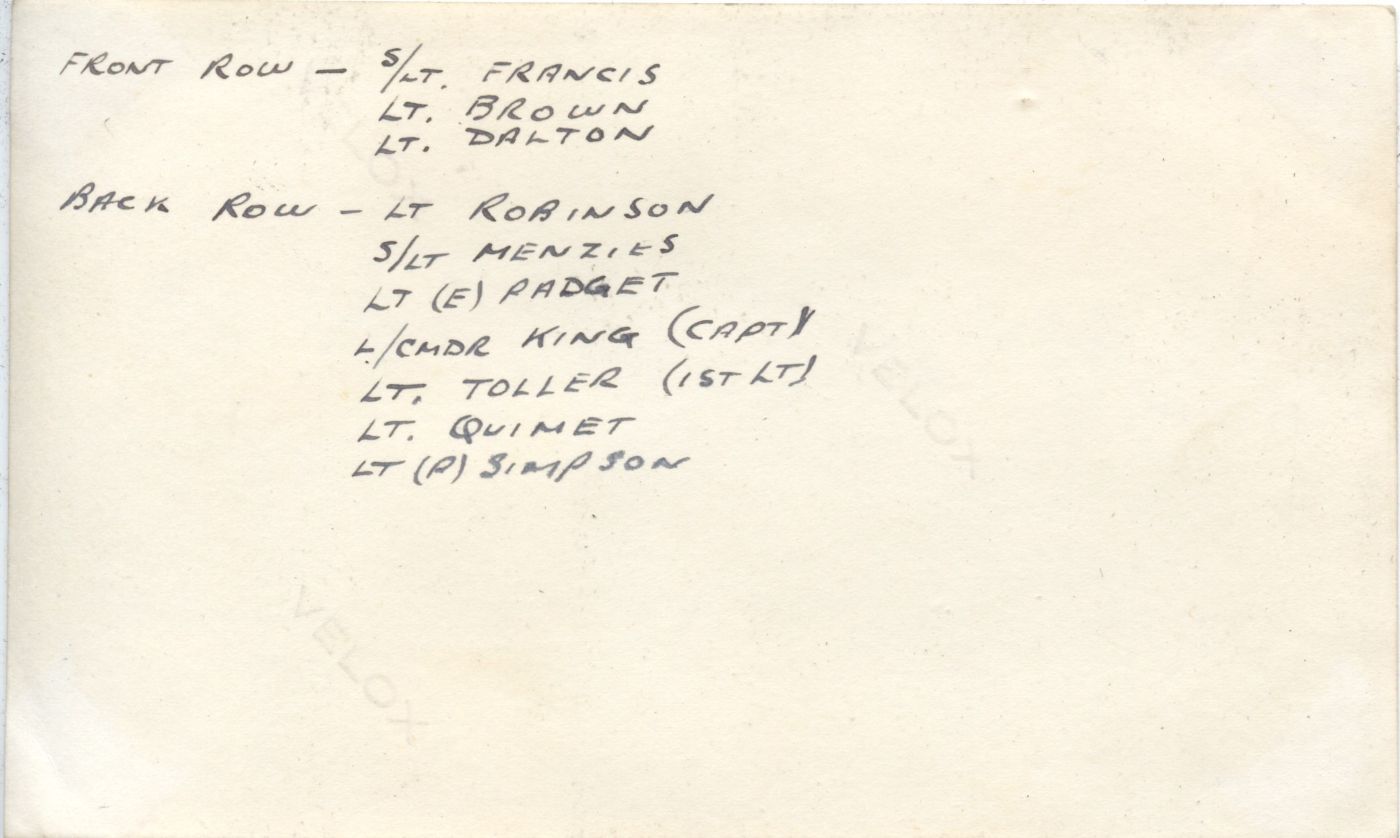 FRONT ROW - S/LT. FRANCIS
LT. BROWN
LT. DALTON
BACK ROW - LT ROBINSON
S/LT MENZIES
LT (E) PADGET
L/CMDR KING (CAPT)
LT. TOLLER (1ST LT)
LT. QUIMET
LT (P) SIMPSON
VELOX
VELOX
VELOX